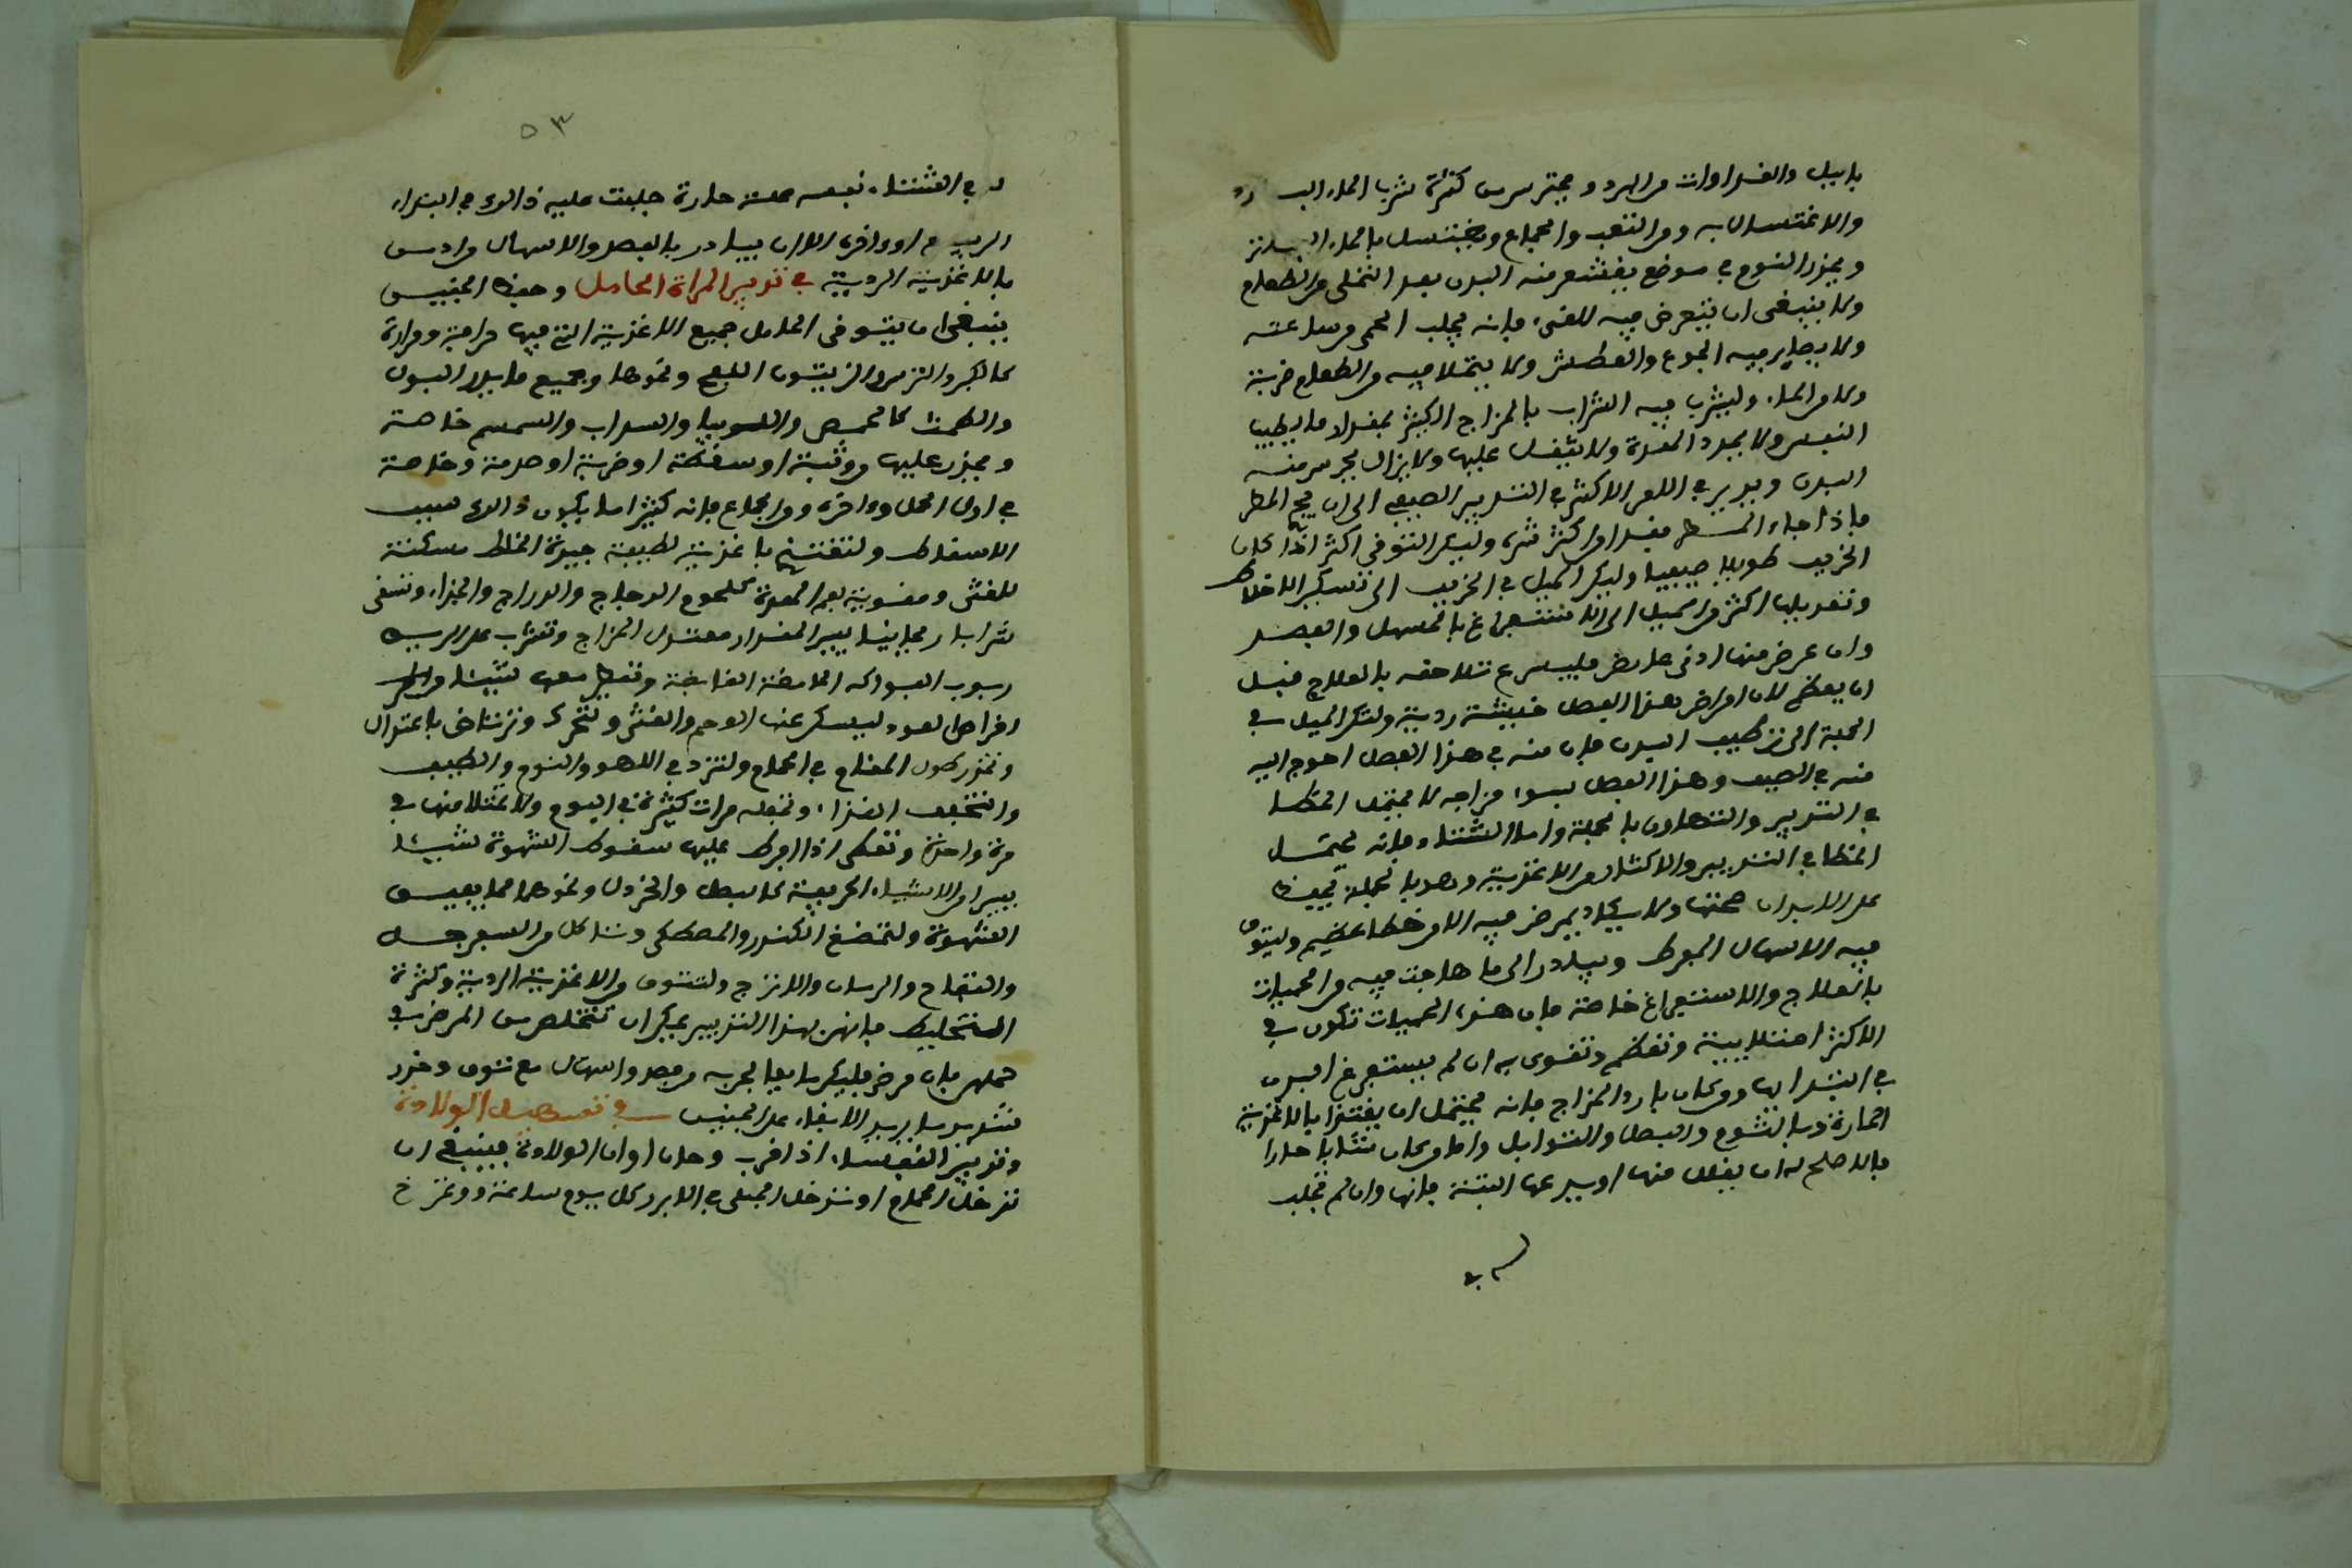 بالليل والغداوات من البرد ويحترس من كثرة شرب الماء البارد
والاغتسال به ومن التعب والجماع ويغتسل بالماء الفاتر
ويحذر النوم في موضع يقشعر منه البدن بعد التملي من الطعام
ولا ينبغي ان يتعرض فيه للقيء فإنه يجلب الحمى من ساعته
ولا يصابر فيه الجوع والعطش ولا يتملا فيه من الطعام ضربة
ولا من الماء وليشرب فيه الشراب بالمزاج الكثير بمقدار ما يطيب
النفس ولا يمدد المعدة ولا يثقل عليها ولا يزال يحرس منه
البدن ويدبر في الامر الاكثر في التدبير الصيفي الى ان يجيء المطر
فاذا جاء المطر فقد امن اكثر شره وليكن التوقي اكثر اذا كان
الخريف طويلا صيفيا وليكن الميل في الخريف الى تسكين الاخلاط
وتعديلها اكثر من الميل الى الاستفراغ بالمسهل والفصد
وان عرض منها ادنى عارض فليسرع تلاحقه بالعلاج قبل
ان يعظم لان امراض هذا الفصل خبيثة ردية وليكن الميل في
الجملة الى ترطيب البدن فان منه في هذا الفصل احوج اليه
منه في الصيف وهذا الفصل لسوء مزاجه لا يحتمل الخطا
في التدبير والتهاون بالجملة واما الشتاء فإنه يحتمل
الخطا في التدبير والاكثار من الاغذية وهو بالجملة يحفظ
على الابدان صحتها ولا يكاد يمرض فيه الا من خطا عظيم وليتوق
فيه الاسهال المفرط ويبادر الى ما هاجت فيه من الحميات
بالعلاج والاستفراغ خاصة فان هذه الحميات تكون في
الاكثر امتلايية وتعظم وتقوى به ان لم يستفرغ البدن
في ابتدائها ومن كان بارد المزاج فإنه يحتمل ان يغتذا بالاغذية
الحارة وبالثوم والبصل والتوابل واما من كان شابا حارا
فالاصلح له ان يقلل منها او يدعها البتة فإنها وان لم تجلب
له في
له في الشتاء نفسه علة حارة جلبت عليه ذالك في ابتداء
الربيع او وافره الا ان يبادر بالفصد والاسهال من ادمن
بالاغذية الردية في تدبير المراة الحامل وحفظ الجنين
ينبغي ان يتوفى الحامل جميع الاغذية التي فيها حرافة ومرارة
كالكبر والترمس والزيتون الفج ونحوها وجميع ما يدر البول
والطمث كالحمص واللوبيا والسداب والسمسم خاصة
ويحذر عليها من وثبة او سقطة او ضربة او صدمة وخاصة
في اول الحمل وواخره ومن الجماع فإنه كثيرا ما يكون ذالك سبب
الاسقاط ولتغتذ باغذية لطيفة جيدة الخلط مسكنة
للغثى ومقوية لفم المعدة كلحوم الدجاج والدراج والجداء وتسقى
شرابا ريحانيا يسير المقدار معتدل المزاج وتشرب على الريق
ربوب الفواكه الحامضة القابضة وتعطى معها شيئا من
اقراص العود ليسكن عنها الوحم والغثى ولتتحرك وترتاض باعتدال
وتحذر طول المقام في الحمام ولتزد في اللهو والنوم والطيب
والتخفيف الغذاء وتجعله مرات كثيرة في اليوم ولا تمتلا منها في
مرة واحدة وتعطى اذا افرط عليها سقوط الشهوة شيئا
يسيرا من الاشياء الحريفة كالبصل والخردل ونحوهما مما يفيق
الشهوة ولتمضغ الكندر والمصطكى وتتاكل من السفرجل
والتفاح والرمان والاترج ولتتوق من الاغذية الردية وكثرة
التخليط فإنهن بهذا التدبير يمكن ان تتخلص من المرض في
حملهن فإن مرض فليكن ما يعالجن به من فصد واسهال مع توق وحذر
شديد ما يريد الابقاء على الجنين في تسهيل الولادة
وتدبير النفساء اذا قرب وحان اوان الولادة فينبغي ان
تدخل الحمام او تدخل الحبلى في الابزن كل يوم ساعة وتمرخ